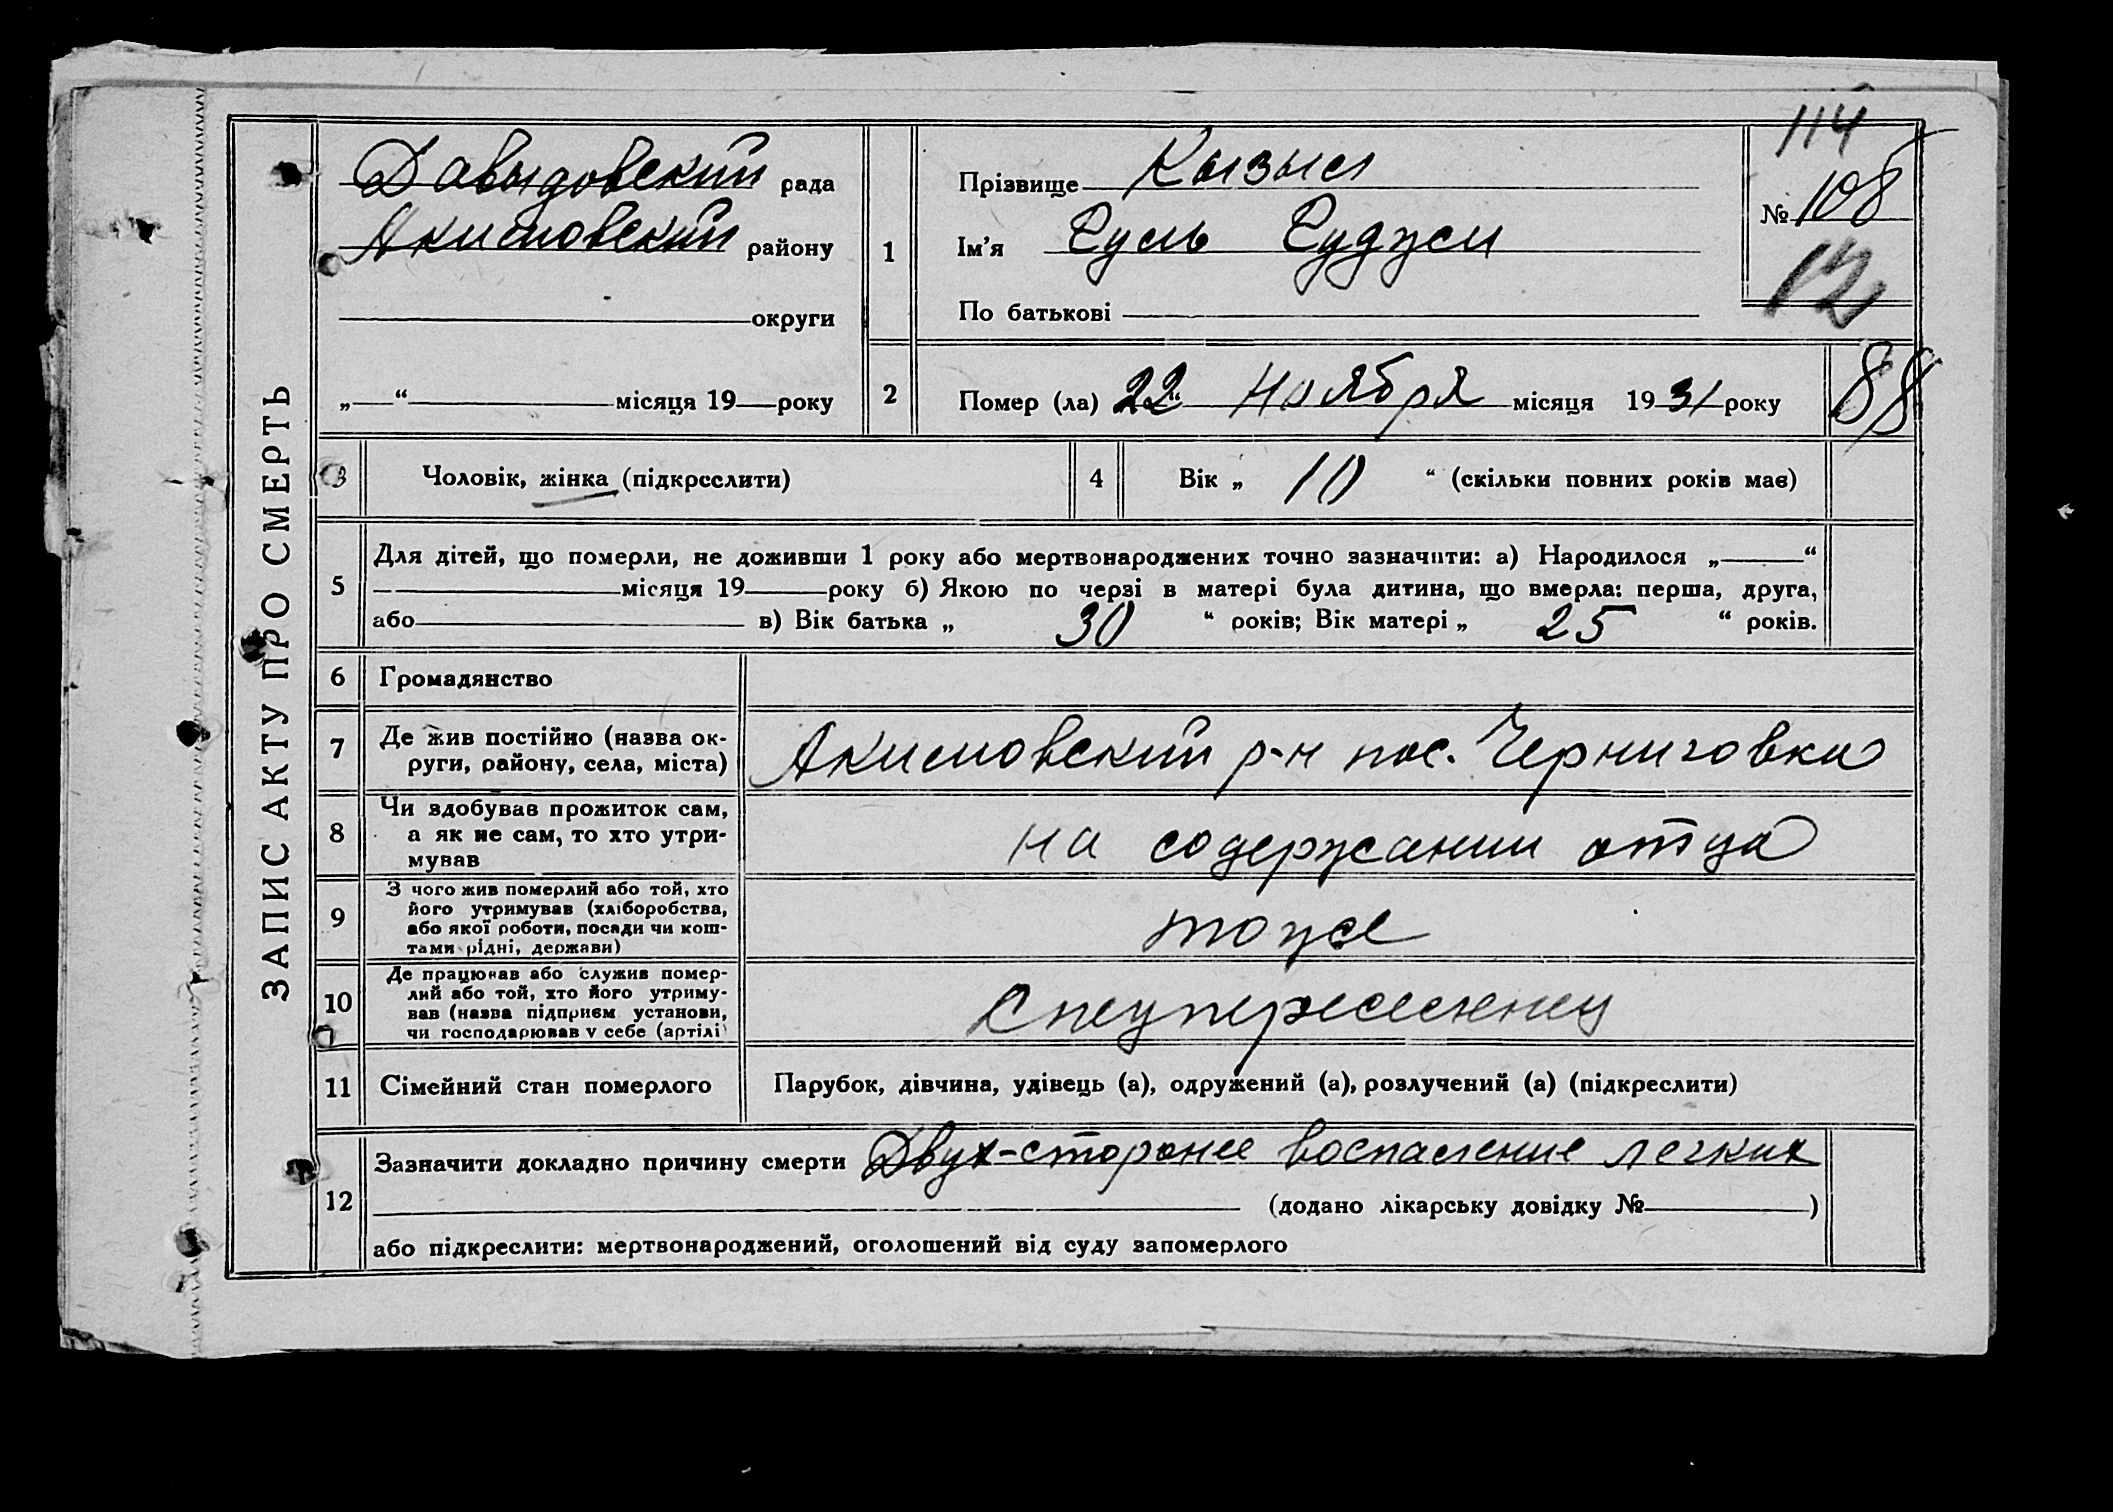 ЗАПИС АКТУ ПРО СМЕРТЬ
Давыдовский рада
Акимовский району
округи
„ “ місяця 19 року
1
Прізвище Кызыл
Ім'я Гуль Гуджи
По батькові
114
№ 108
2
Помер (ла) 22 ноября місяця 1931 року
88
3
Чоловік, жінка (підкреслити)
4
Вік „ 10 “ (скільки повних років має)
5
Для дітей, що померли, не доживши 1 року або мертвонароджених точно зазначити: а) Народилося „ “
місяця 19 року б) Якою по черзі в матері була дитина, що вмерла: перша, друга,
або в) Вік батька „ 30 “ років; Вік матері „ 25 “ років.
6
Громадянство
7
Де жив постійно (назва ок-
руги, району, села, міста)
Акимовский р-н пос. Черниговка
8
Чи здобував прожиток сам,
а як не сам, то хто утри-
мував
на содержании отца
9
З чого жив померлий або той, хто
його утримував (хліборобства,
або якої роботи, посади чи кош-
тами рідні, держави)
тоже
10
Де працював або служив помер-
лий або той, хто його утриму-
вав (назва підприєм установи,
чи господарював у себе (артілі
Спецпереселенец
11
Сімейний стан померлого
Парубок, дівчина, удівець (а), одружений (а), розлучений (а) (підкреслити)
12
Зазначити докладно причину смерти Двух-стороннее воспаление легких
(додано лікарську довідку № )
або підкреслити: мертвонароджений, оголошений від суду запомерлого